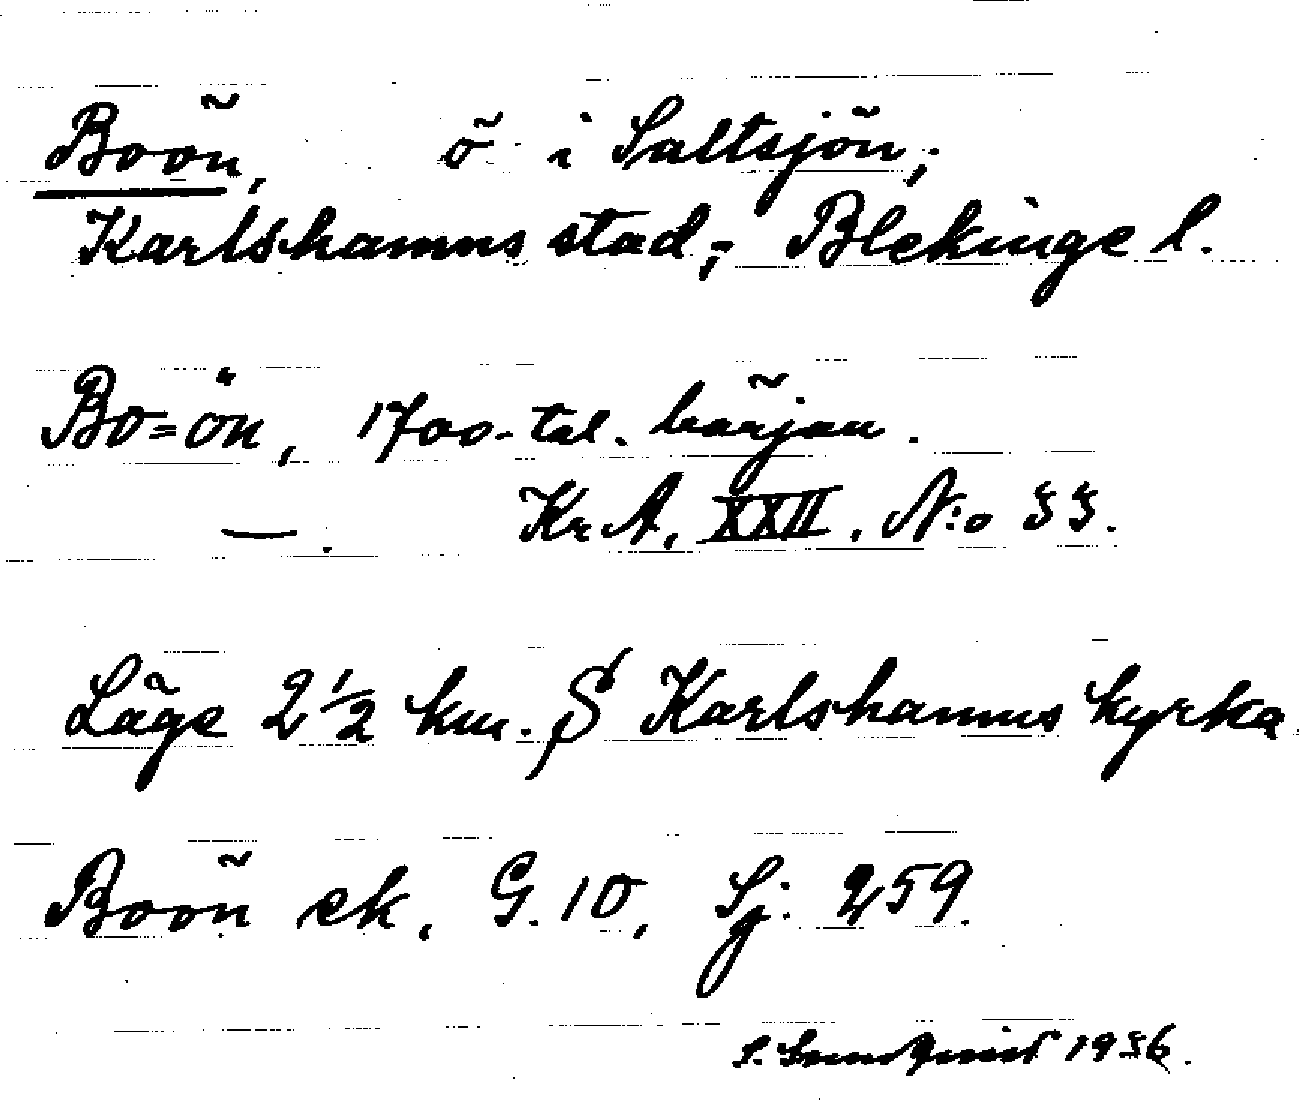 Boön, ö i Saltsjön,
Karlshamns stad, Blekinge l.
Bo=ön, 1700-tal. början.
— . Kr A. XXII. N:o 33.
Läge 2 1/2 km. S Karlshamns kyrka
Boön ek. G. 10, Sj: 259.
1936.